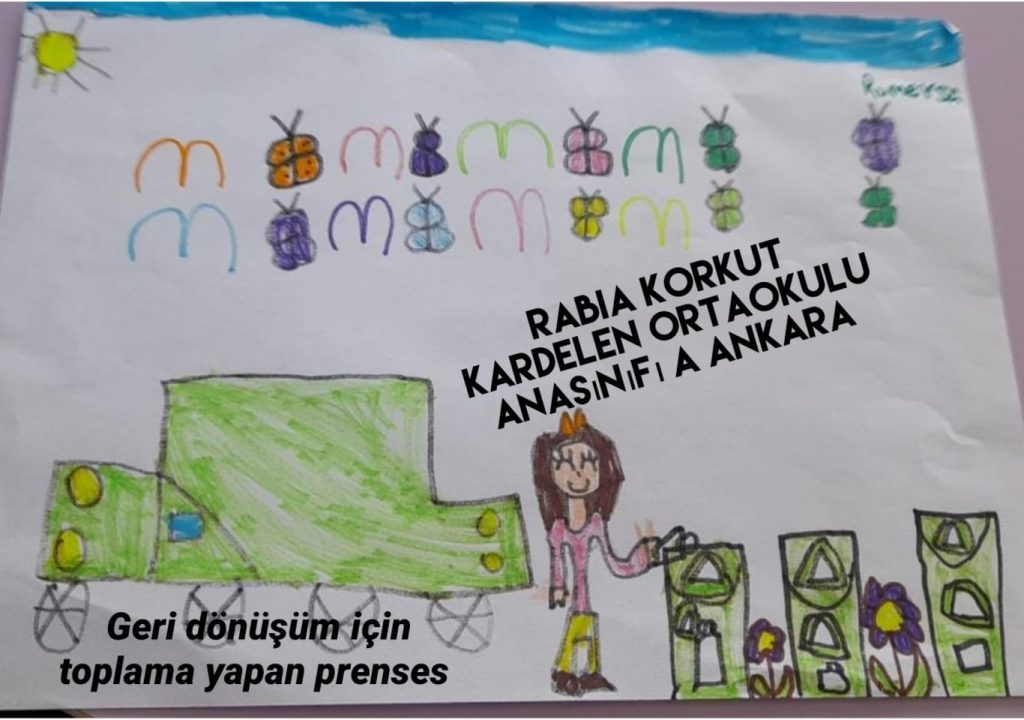 Rumeysa
RABIA KORKUT
KARDELEN ORTAOKULU
ANASıNıFı A ANKARA
Geri dönüşüm için
toplama yapan prenses